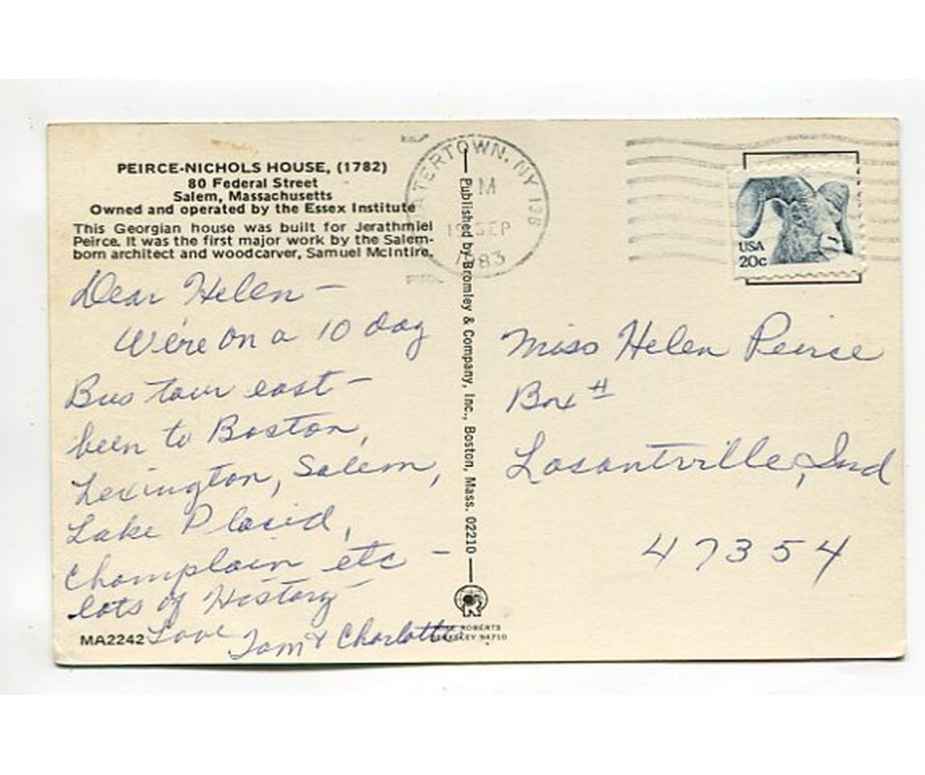 PEIRCE-NICHOLS HOUSE, (1782)
80 Federal Street
Salem, Massachusetts
Owned and operated by the Essex Institute
This Georgian house was built for Jerathmiel
Peirce. It was the first major work by the Salem-
born architect and woodcarver, Samuel McIntire.
Dear Helen —
We're on a 10 day
Bus tour east —
been to Boston,
Lexington, Salem,
Lake Placid,
Champlain etc —
lots of History —
Love Tom & Charlotte
MA2242
Published by Bromley & Company, Inc., Boston, Mass. 02210
ROBERTS
BERKELEY 94710
ATERTOWN, NY 136
M
SEP
1983
USA
20c
Miss Helen Peirce
Box #
Losantville, Ind
47354